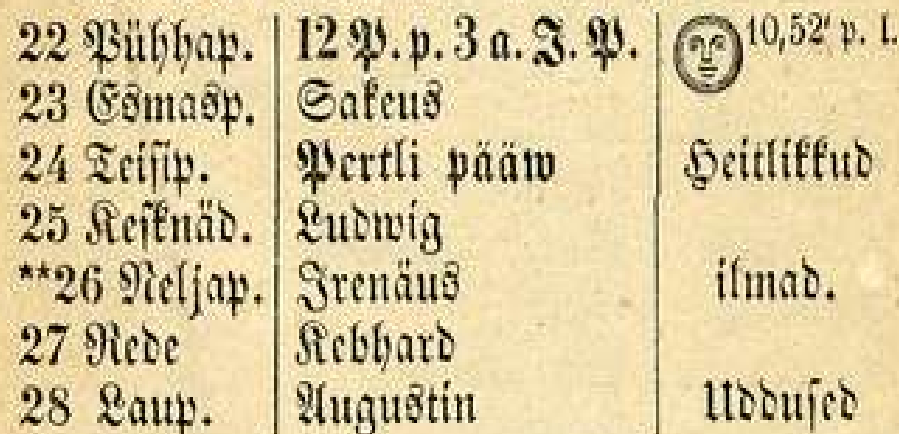 22 Pühhap. 12 P. p. 3 a. J. P. 10,52' p. l.
23 Esmasp. Sakeus
24 Teisip. Pertli pääw Heitlikkud
25 Kesknäd. Ludwig
**26 Neljap. Irenäus ilmad.
27 Rede Kebhard
28 Laup. Augustin Uddused